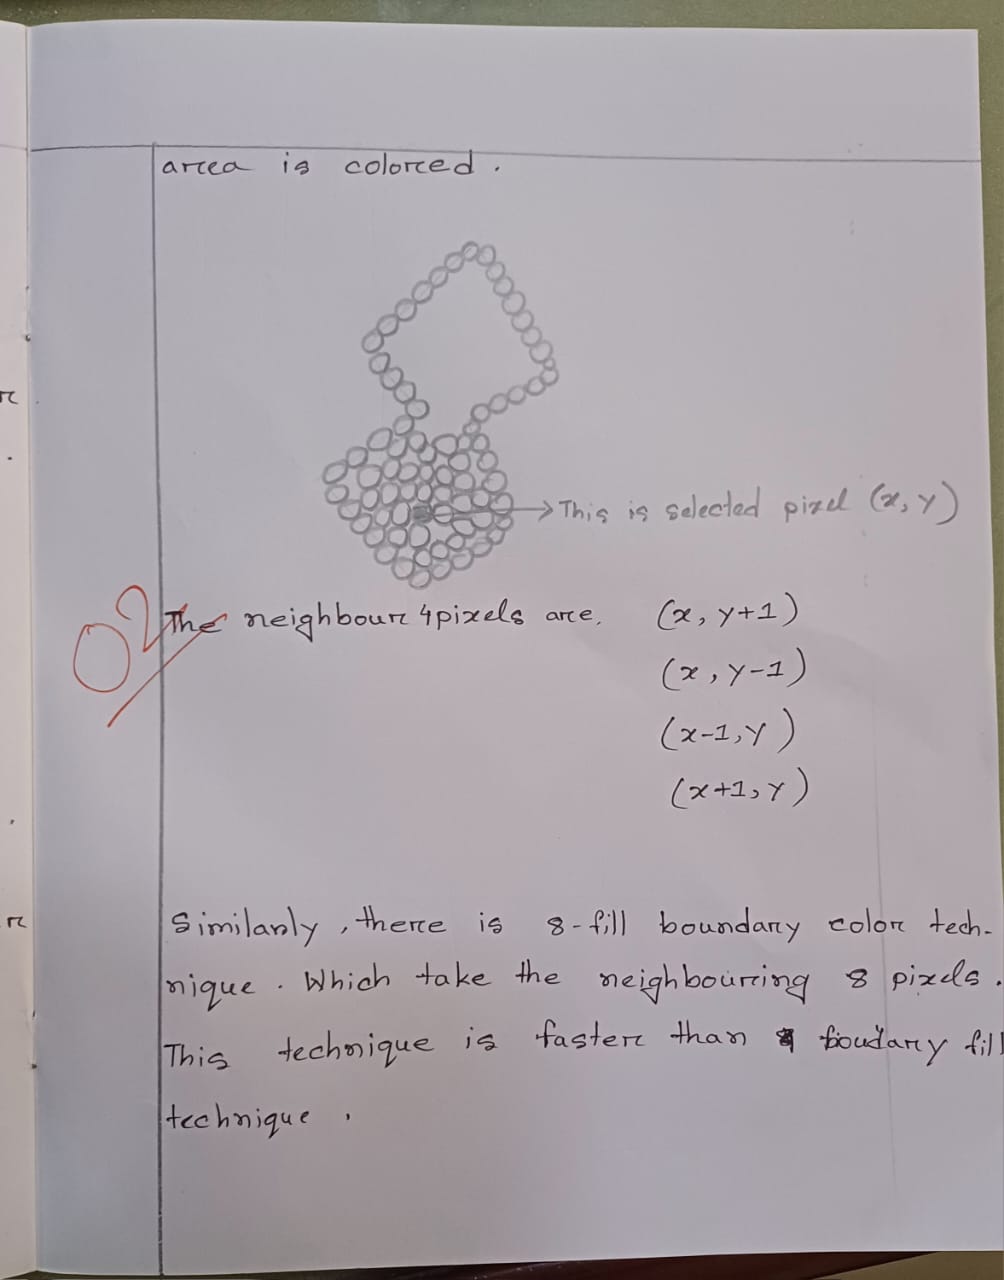 area is colored.
→ This is selected pixel (x, y)
02
The neighbour 4 pixels are, (x, y+1)
(x, y-1)
(x-1, y)
(x+1, y)
Similarly, there is 8-fill boundary color tech-
nique. Which take the neighbouring 8 pixels.
This technique is faster than boudary fill
technique.